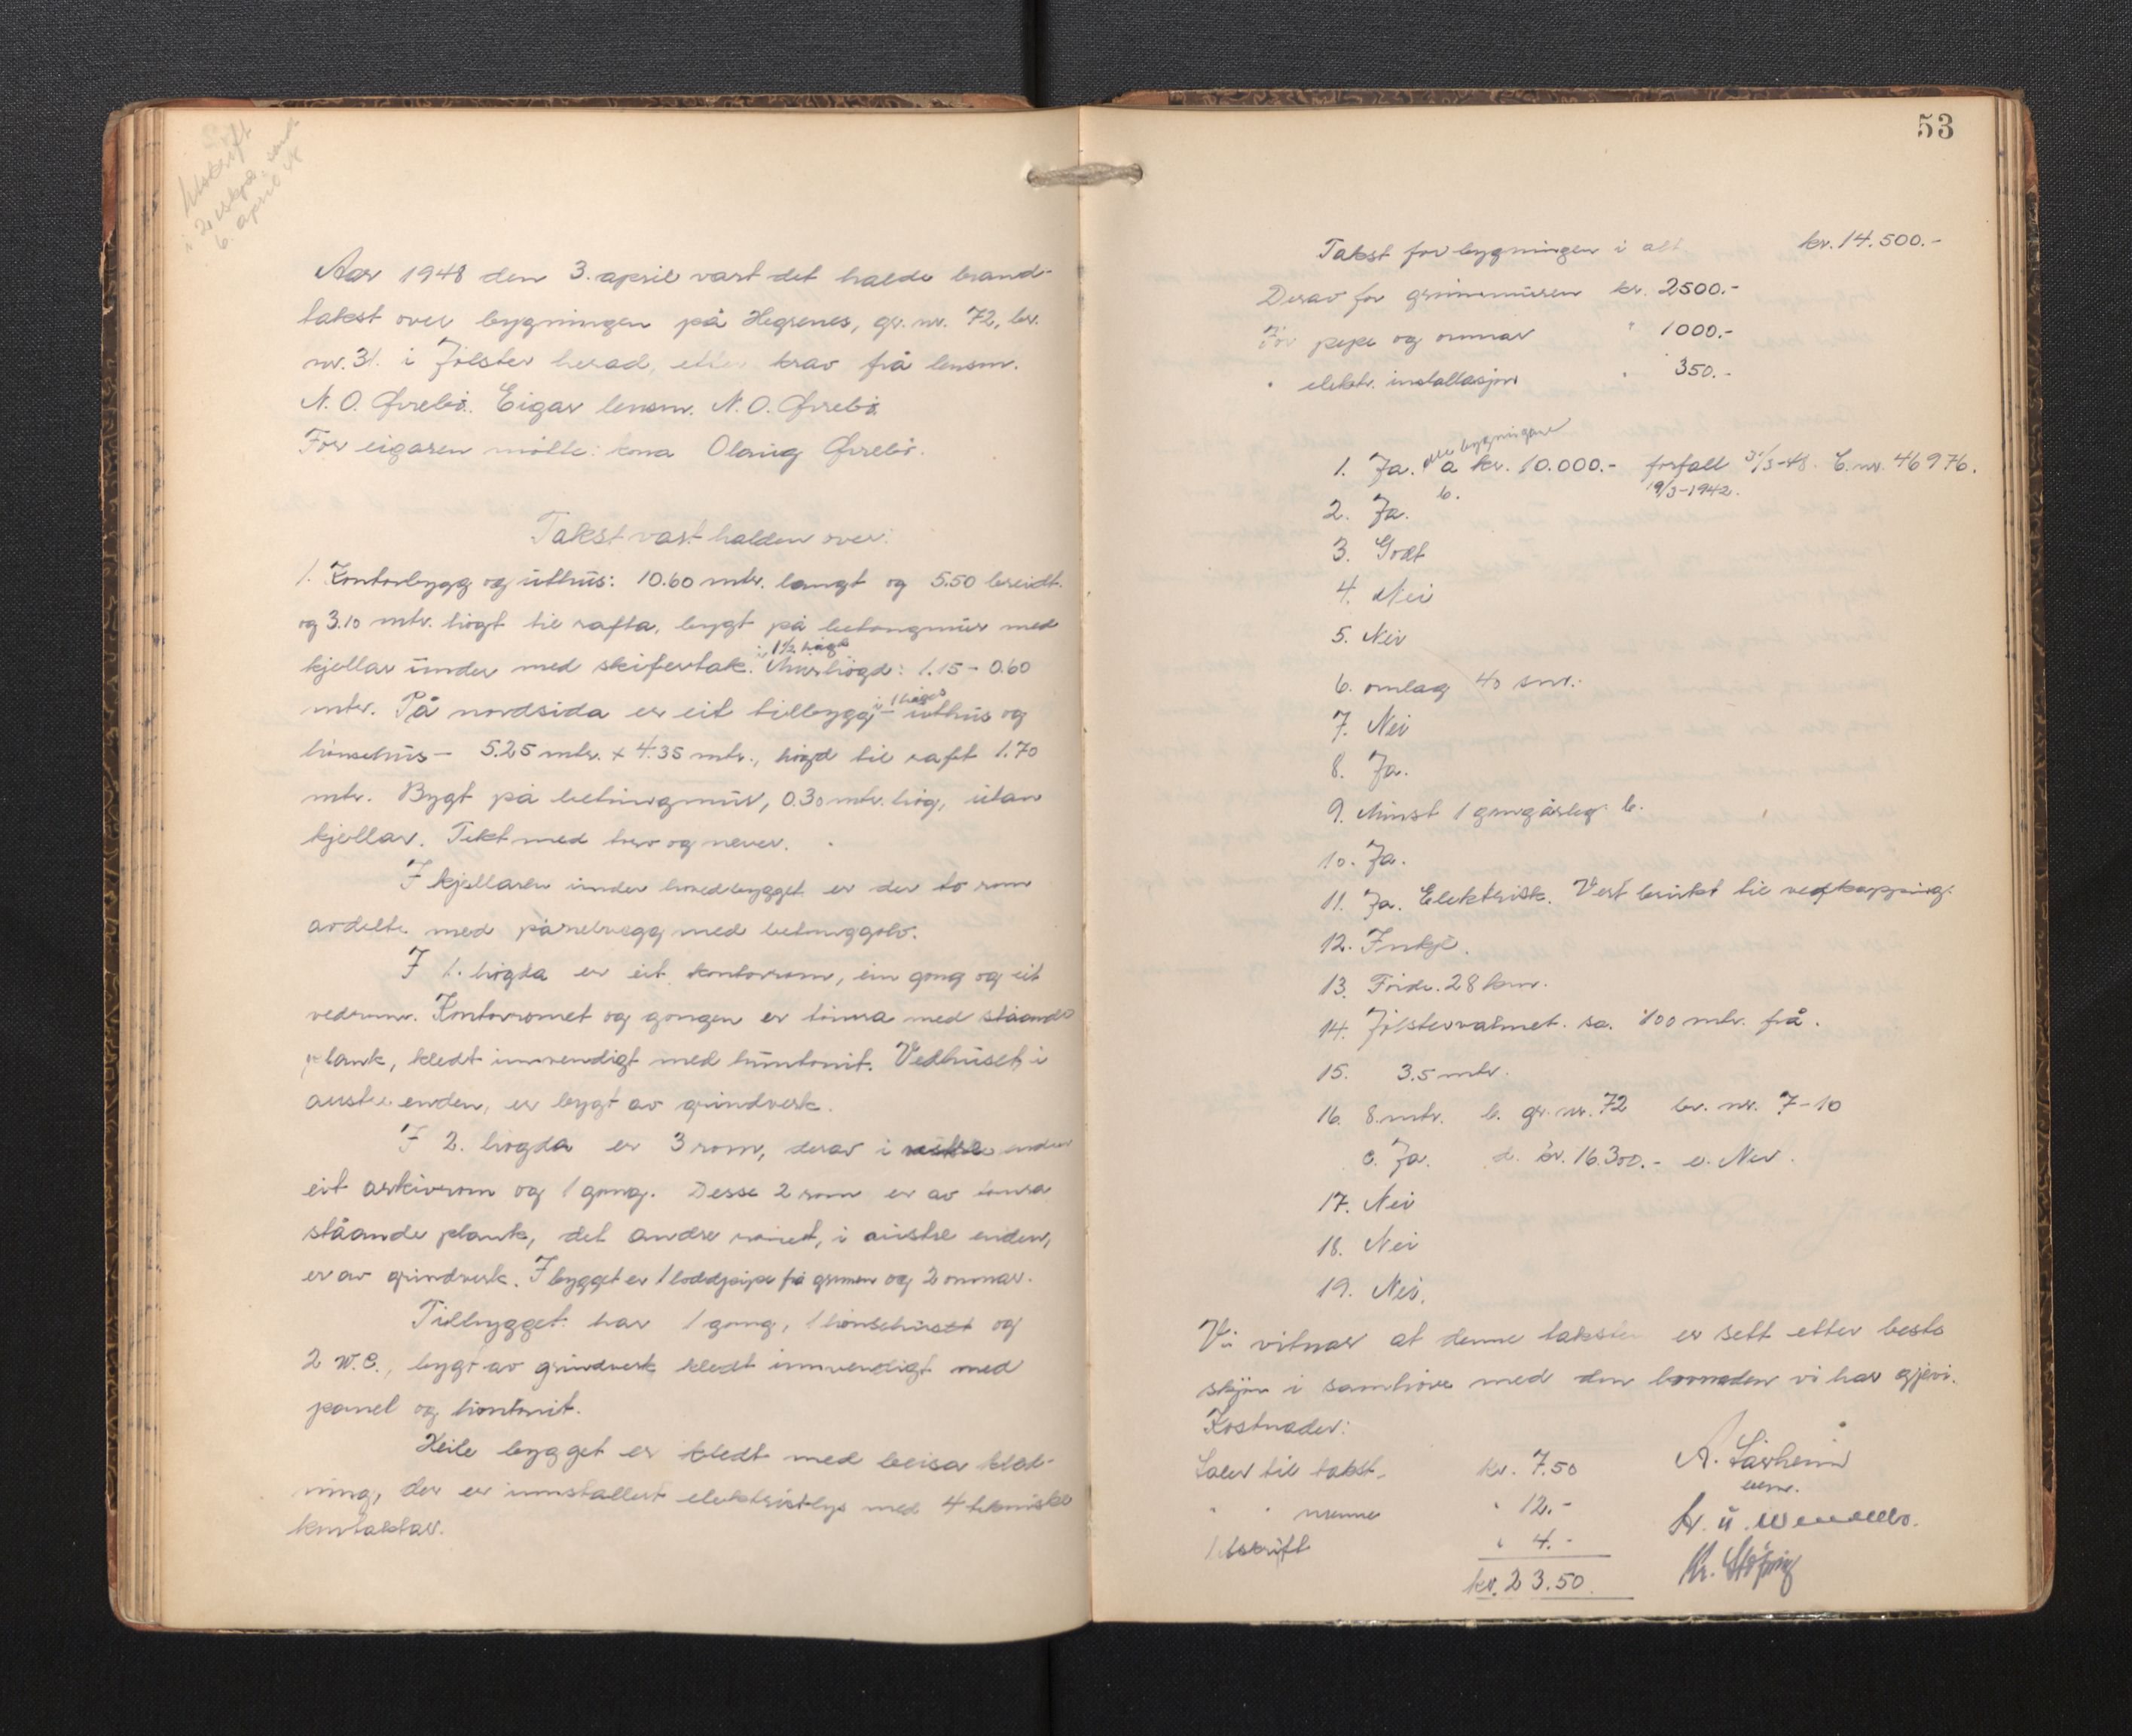 Utskrift
i 2 eskpl. sendt
6. april 48
Aar 1948 den 3. april vart det halde brand-
takst over bygningen på Hegrenes, gr. nr. 72, br.
nr. 31. i Jølster herad, etter krav frå lensm.
N. O. Ørrebö. Eigar lensm. N. O. Ørrebö.
For eigaren møtte: kona Olaug Ørrebö.
Takst vart halden over:
1. Kontorbygg og uthus: 10.60 mtr. langt og 5.50 breidt.
og 3.10 mtr. högt til rafta, bygt på betongmur med
i 1½ högd
kjellar under med skifertak. Murhögd: 1.15 - 0.60
i 1 högd
mtr. På nordsida er eit tilbygg - uthus og
hönsehus - 5.25 mtr. x 4.35 mtr., högd til raft 1.70
mtr. Bygt på betongmur, 0.30 mtr. hög, utan
kjellar. Tekt med torv og never.
I kjellaren under hovedbygget er der to rom
avdelte med panelvegg med betonggolv.
I 1. högda er eit kontorrom, ein gong og eit
vedrom. Kontorromet og gongen er tömra med ståande
plank, kledt innvendigt med huntonit. Vedhuset, i
austre enden, er bygt av grindverk.
I 2. högda er 3 rom, derav i vestre enden
eit arkivrom og 1 gong. Desse 2 rom er av tömra
ståande plank, det andre romet, i austre enden,
er av grindverk. I bygget er 1 loddpipe frå grunnen og 2 omnar.
Tilbygget har 1 gong, 1 hönsehus og
2 W.C., bygt av grindverk kledt innvendigt med
panel og huntonit.
Heile bygget er kledt med beisa kled-
ning, der er innstallert elektrisk lys med 4 tekniske
kontaktar.
53
Takst for bygningen i alt kr. 14.500.-
Derav for grunnmuren kr. 2500.-
For pipe og omnar " 1000.-
" elektr. installasjon " 350.-
alle bygningane
1. Ja. a kr. 10.000.- forfall 31/3-48. C. nr. 46976.
b. 19/3-1942.
2. Ja.
3. Godt
4. Nei
5. Nei
6. omlag 40 
7. Nei
8. Ja.
9. Minst 1 gong årleg. b.
10. Ja.
11. Ja. Elektrisk. Vert brukt til vedkapping.
12. Inkje.
13. Förde. 28 km.
14. Jølstervatnet. ca. 100 mtr. frå.
15. 3.5 mtr.
16. 8. mtr. b. gr. nr. 72 br. nr. 7-10
c. Ja. d. kr. 16.300.- e. Nei.
17. Nei
18. Nei
19. Nei.
Vi vitnar at denne taksten er sett etter beste
skjön i samhöve med den  vi har gjevi.
Kostnader:
Lover til takst. kr. 7.50
" " " 12.-
Utskrift " 4.-
kr. 23.50
A. Sårheim